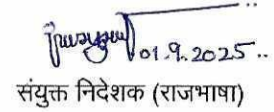 01.9.2025..
संयुक्त निदेशक (राजभाषा)